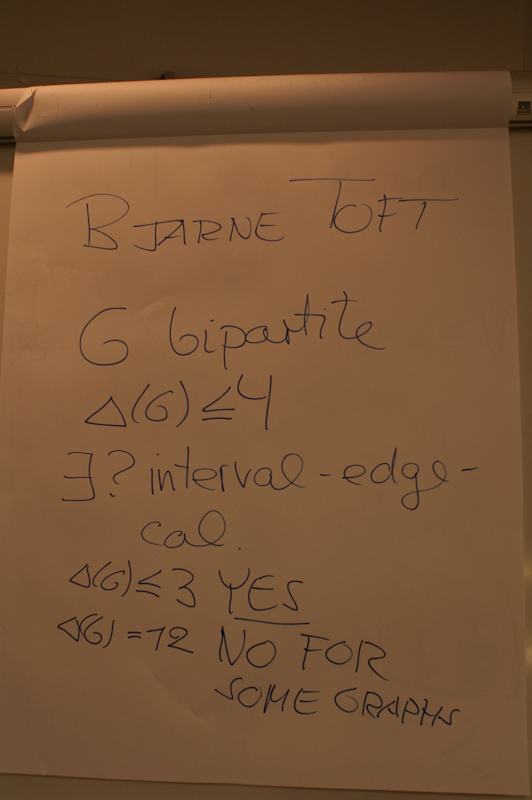 BJARNE TOFT
G bipartite
Δ(G) ≤ 4
∃? interval-edge-
col.
Δ(G) ≤ 3 YES
Δ(G) = 12 NO FOR
SOME GRAPHS